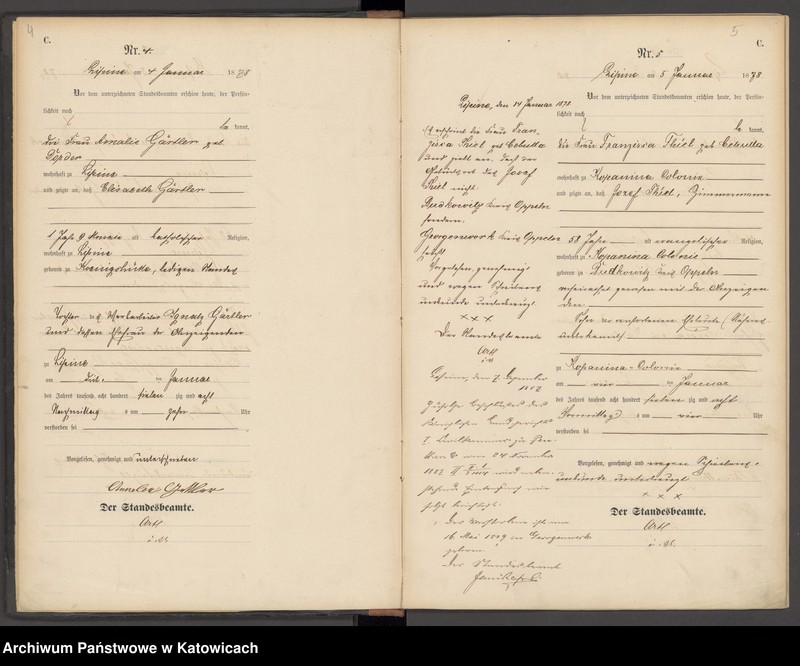 4
C.
Nr. 4.
Lipine am 4 Januar 1878
Vor dem unterzeichneten Standesbeamten erschien heute, der Persön-
lichkeit nach
be kannt,
die Frau Amalie Gärtler geb
wohnhaft zu Lipine
und zeigte an, daß Elisabeth Gärtler
1 Jahr 9 Monate alt katholischer Religion,
wohnhaft zu Lipine
geboren zu Koenigshütte, ledigen Standes
Tochter des Werkarbeiter Ignatz Gärtler
und dessen Ehefrau der Anzeigenden
zu Lipine
am drei Januar
des Jahres tausend acht hundert sieben zig und acht
Nachmittag s um zehn Uhr
verstorben sei
Vorgelesen, genehmigt und unterschrieben
Amalie Gärtler
Der Standesbeamte.
i. V.
5
C.
Nr. 5
Lipine am 5 Januar 1878
Vor dem unterzeichneten Standesbeamten erschien heute, der Persön-
lichkeit nach
be kannt,
die Frau Franziska Thiel geb Cebulla
wohnhaft zu Kopanina Colonie
und zeigte an, daß Josef Thiel, Zimmermann
58 Jahr alt evangelischer Religion,
wohnhaft zu Kopanina Colonie
geboren zu Kreis Oppeln
verheirathet gewesen mit der Anzeigen
den
Sohn der verstorbenen Eheleute (Namen
unbekannt)
zu Kopanina-Colonie
am vier Januar
des Jahres tausend acht hundert sieben zig und acht
Vormittag s um vier Uhr
verstorben sei
Vorgelesen, genehmigt und wegen Schreibens-
unkunde unterkreuzt
x x x
Der Standesbeamte.
i. V.
Lipine, den 14 Januar 1878
erscheint die Frau Fran-
ziska Thiel geb Cebulla
und zeigt an, daß der
Geburtsort des Josef
Thiel nicht
Kreis Oppeln
sondern
Georgenwerk Kreis Oppeln
heißt
Vorgelesen, genehmigt
und wegen Schreibens
unkunde unterkreuzt
x x x
Der Standesbeamte
i. V.
Lipine, den 7. Dezember
1882
Königlichen Landgerichts
24 November
1882
16. Mai 1819 in Georgenwerk
geboren
Der Standesbeamte
Archiwum Państwowe w Katowicach